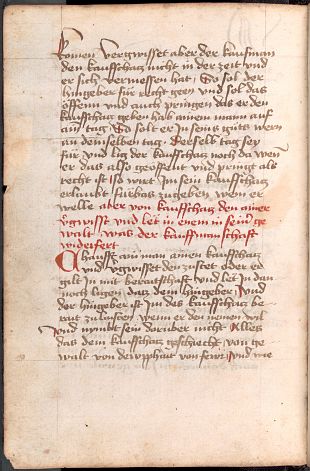 komen vergwisset aber der kaufman
den kauffschatz nicht in der zeit vnd
er sich vermessen hat So sol der
hingeber für recht geen vnd sol das
öffenn vnd auch pringen das er den
kauffschatz geben hab ainem mann auf
ain tag So solt er In seins guts wern
an demselben tag Derselb tag sey
für vnd lig der kauffschatz noch da wen
er das also geöffent vnd pringt als
recht ist So wirt Im sein kauffschatz
erlaubt fürbas zugeben wem er
welle aber von kauffschatz den ainer
vgwisst vnd let in enem in sein ge
walt was der kauffmanschafft
widerfert
Chaufft ain man ainen kauffschatz
vnd vgwisset den zustet oder er
gilt In mit beraitschafft vnd let In dan
noch ligen pas dem hingeber Vnd
der hingeber ist Im des kauffschatz be
rait zulassen wenn er den nemen wil
vnd nymbt sein darüber nicht Alles
das dem kauffschatz geschiecht von ge
walt von deupphait von fewr vnd wie